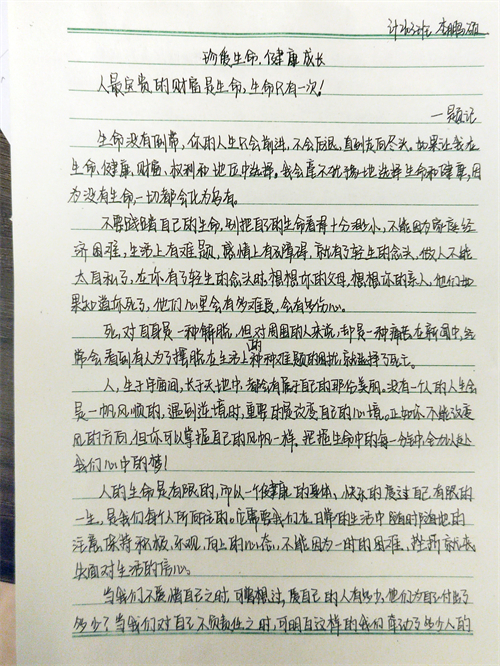 珍爱生命,健康成长
人最宝贵的财富是生命,生命只有一次!
一题记
生命没有倒带,你的人生只会前进,不会后退,直到走向尽头。如果让我在
生命、健康、财富、权利和地位中选择。我会毫不犹豫地选择生命和健康,因
为没有生命,一切都会化为乌有。
不要践踏自己的生命,别把自己的生命看得十分渺小,不能因为家庭经
济困难,生活上有难题,感情上有障碍,就有了轻生的念头,做人不能
太自私了,在你有了轻生的念头时,想想你的父母,想想你的亲人,他们如
果知道你死了,他们心里会有多难受,会有多伤心。
死,对自身是一种解脱,但对周围的人来说,却是一种痛苦在新闻中,经
常会看到有人为了摆脱在生活上的种种难题的困扰,就选择了死亡。
人,生于宇宙间,长于天地中,都会有属于自己的那份美丽。没有一个人的人生会
是一帆风顺的,遇到逆境时,重要的是改变自己的心境。正如你不能改变
风的方向,但你可以掌握自己的风帆一样。把握生命中的每一分钟,全力以赴
我们心中的梦!
人的生命是有限的,所以一个健康的身体,快乐的度过自己有限的
一生,是我们每个人所向往的。它需要我们在日常的生活中随时随地的
注意,保持积极、乐观、向上的心态,不能因为一时的困难,挫折就丧
失面对生活的信心。
当我们不爱惜自己之时,可曾想过,爱自己的人有多少,他们为自己付出了
多少?当我们对自己不负责任之时,可明白这样的我们牵动了多少人的